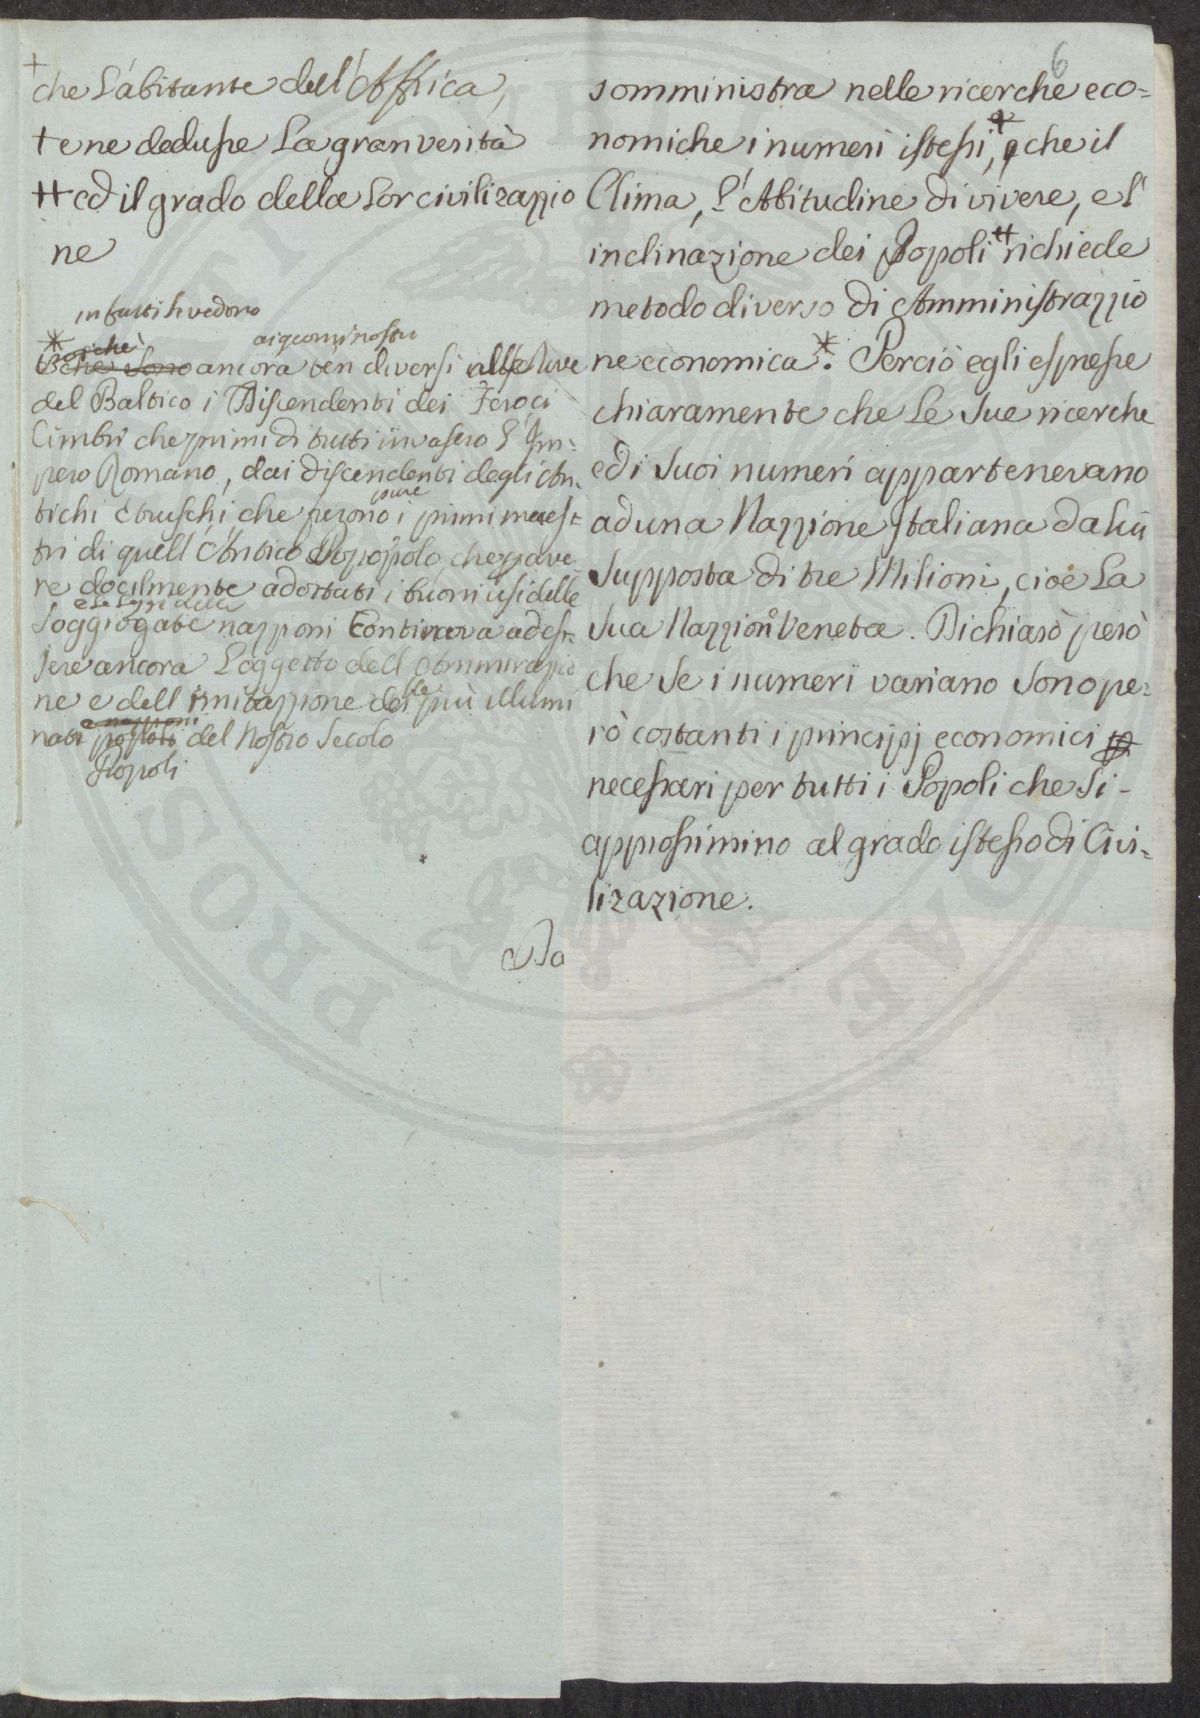 +
che L'abitante dell'Affrica,
+ e ne dedusse La gran verità
++ ed il grado della Lor civilizazzio
ne
infatti si vedono
* poichè ai giorni nostri
che sono ancora ben diversi alle Rive
del Baltico i Discendenti dei Feroci
Cimbri che primi di tutti invasero l'Im-
pero Romano, dai discendenti degli An-
tichi Etruschi che furono i primi maes-
pure
tri di quell'Antico Popopolo, che p ave-
re docilmente adottati i buoni usi delle
e le Leggi delle
soggiogate nazzioni Continova ad es-
sere ancora L'oggetto dell'Ammirazio
ne e dell'imitazzione delle più illumi
nate popoli del Nostro Secolo
e nazzoni
Popoli
Da
6
somministra nelle ricerche eco-
nomiche i numeri istessi,+ che il
Clima, L'Abitudine di vivere, e l'
inclinazione dei Popoli ++ richiede
metodo diverso di Amministrazzio
ne economica*. Perciò egli espresse
chiaramente che Le sue ricerche
ed i suoi numeri appartenevano
ad una Nazzione Italiana da lui
supposta di tre Milioni, cioè La
sua Nazzione Veneta. Dichiarò però
che se i numeri variano sono pe-
rò costanti i principj economici
necessari per tutti i Popoli che si-
approssimino al grado istesso di Civi-
lizazione.
PROS